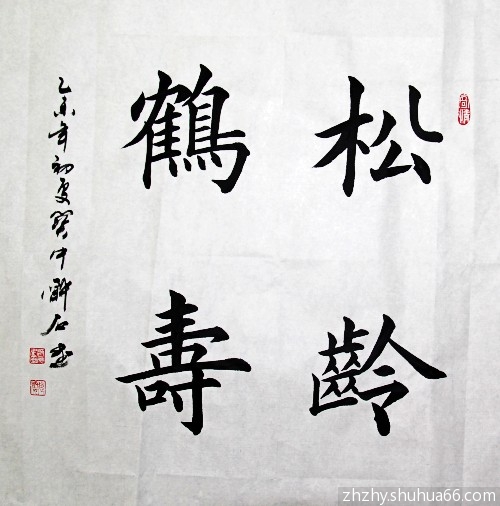 松齡
鶴壽
乙未年初夏賢中懈石書
zhzhy.shuhua66.com